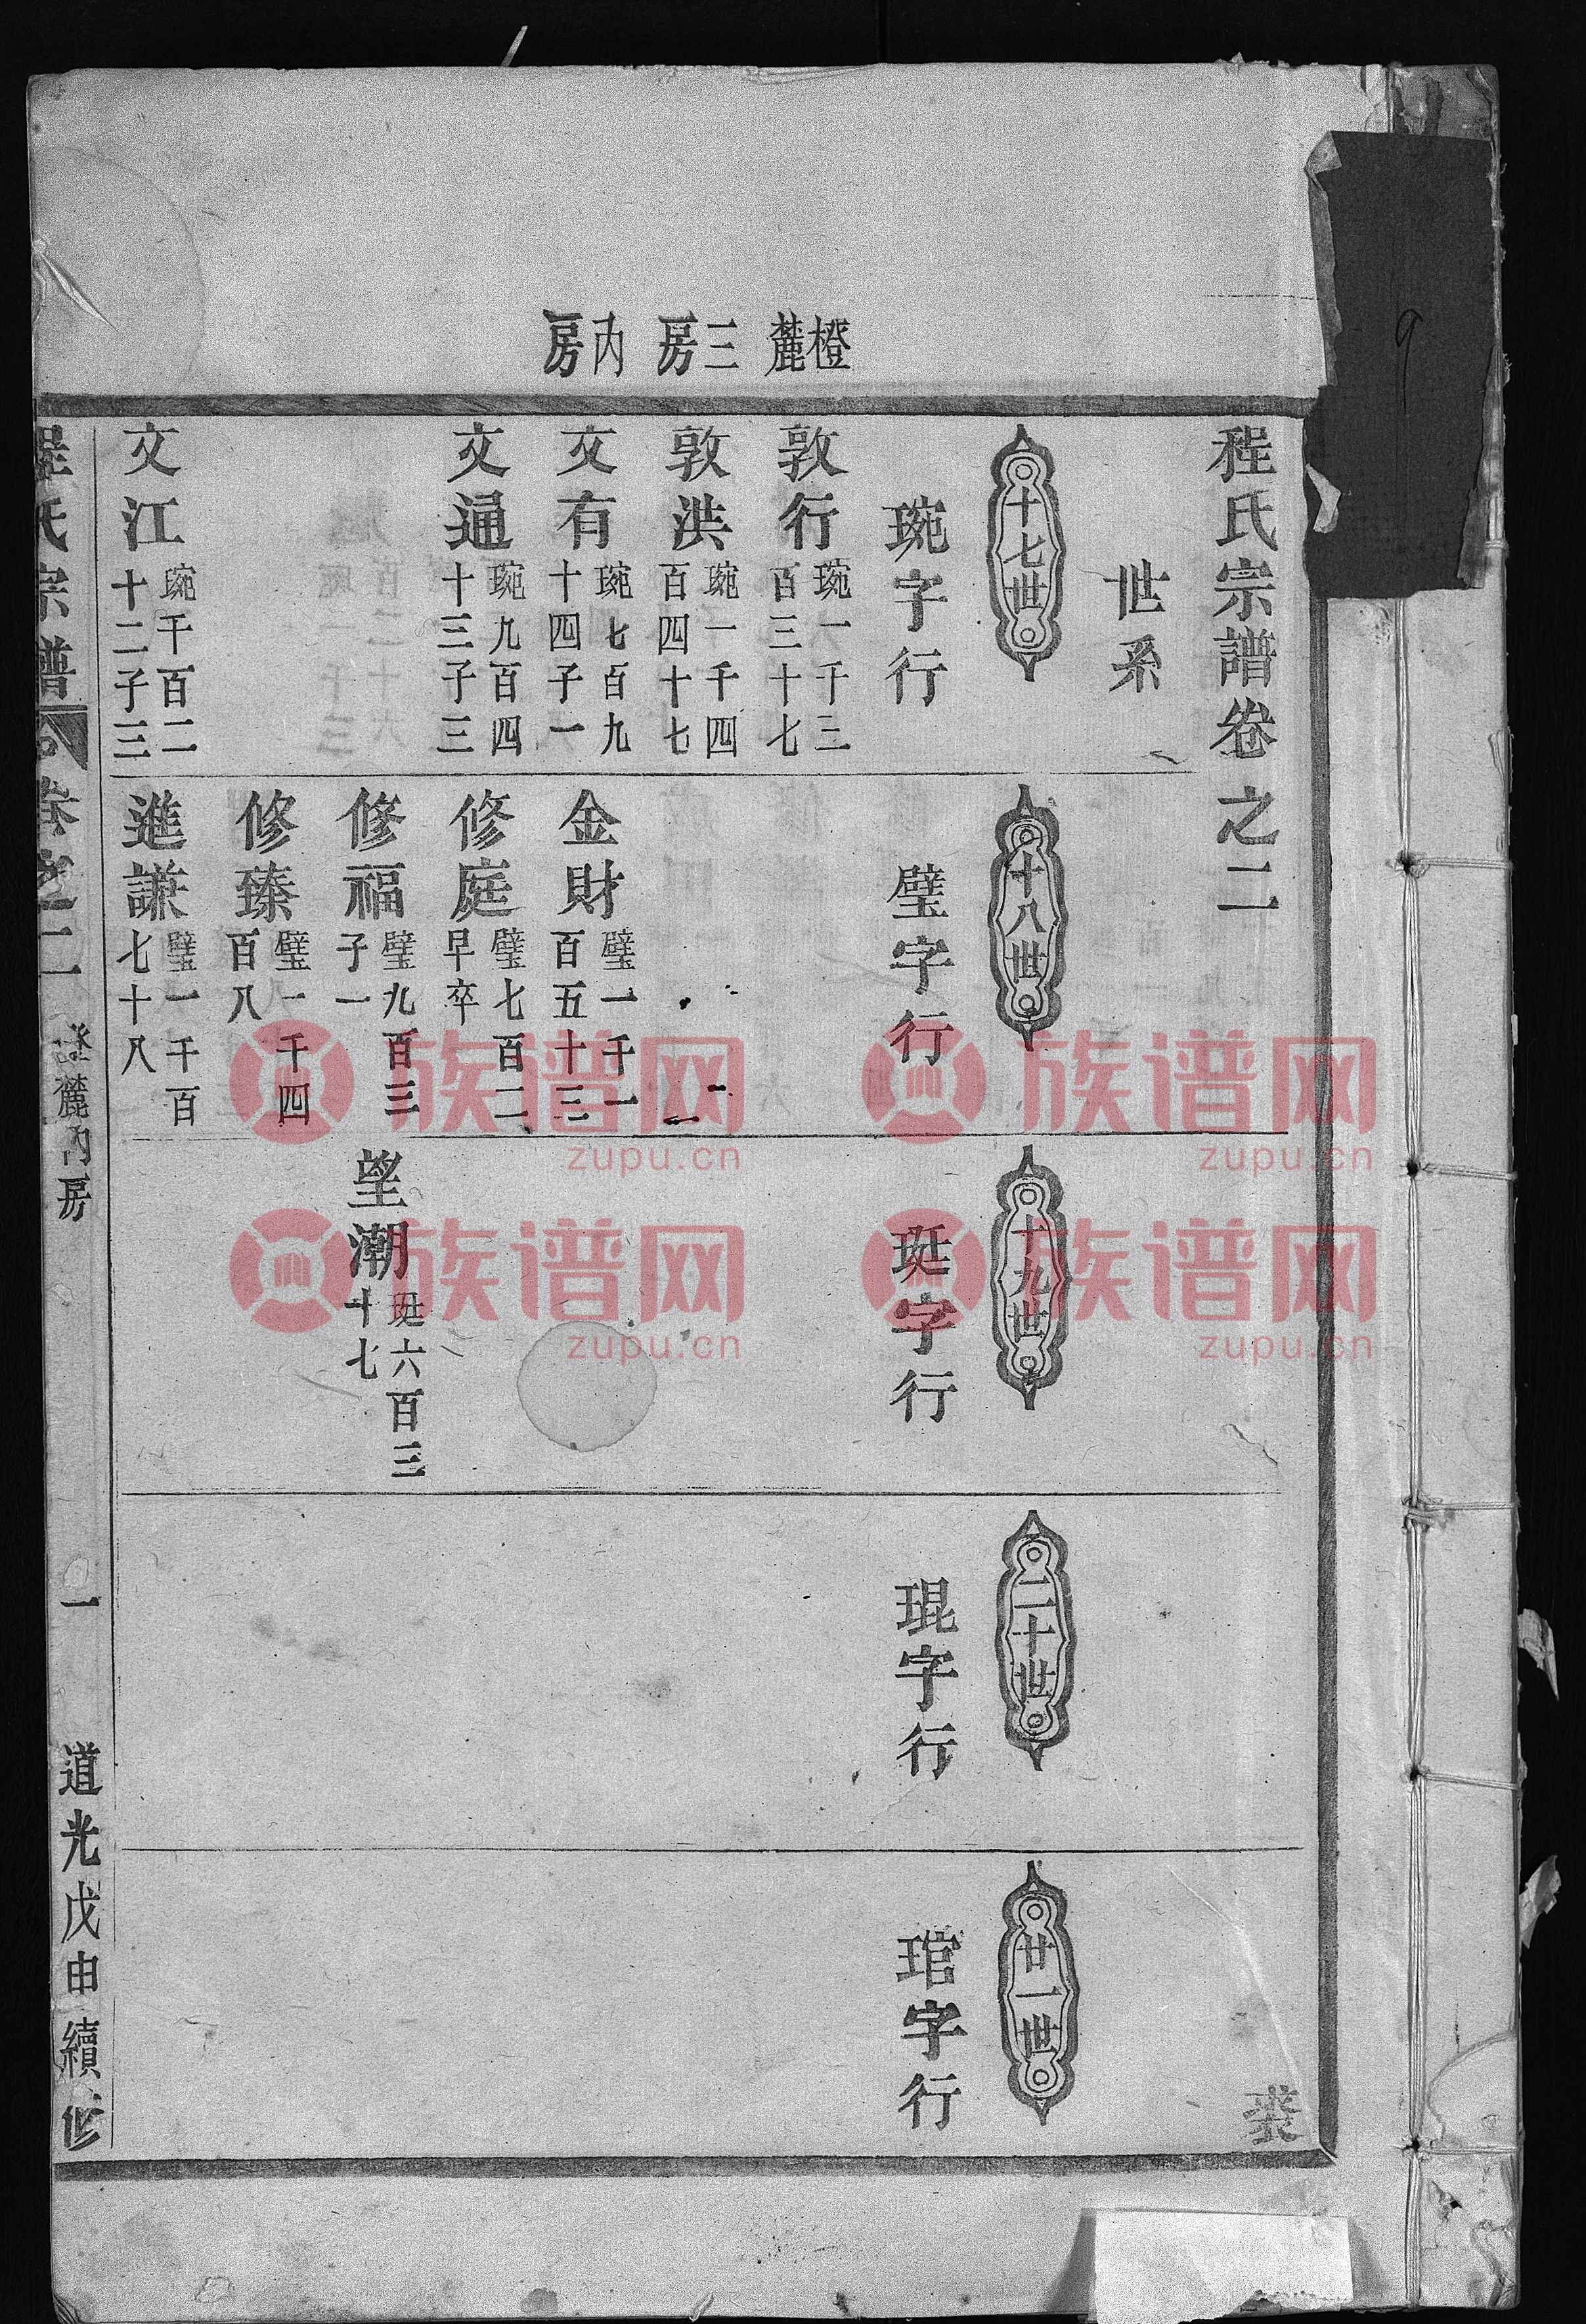 橙麓
三房
內房
程氏宗譜卷之二
世系
十七世
琬字行
敦行 琬一千三百三十七
敦洪 琬一千四百四十七
文有 琬七百九十四子一
文通 琬九百四十三子三
文江 琬千百二十二子三
十八世
璧字行
金財 璧一千一百五十三
修庭 璧七百二早卒
修福 璧九百三子一
修臻 璧一千四百八
進謙 璧一千百七十八
十九世
珽字行
望潮 珽六百三十七
二十世
琨字行
廿一世
琯字行
裘
程氏宗譜
卷之二
橙麓內房
一
道光戊申續修
9
族谱网
zupu.cn
族谱网
zupu.cn
族谱网
zupu.cn
族谱网
zupu.cn